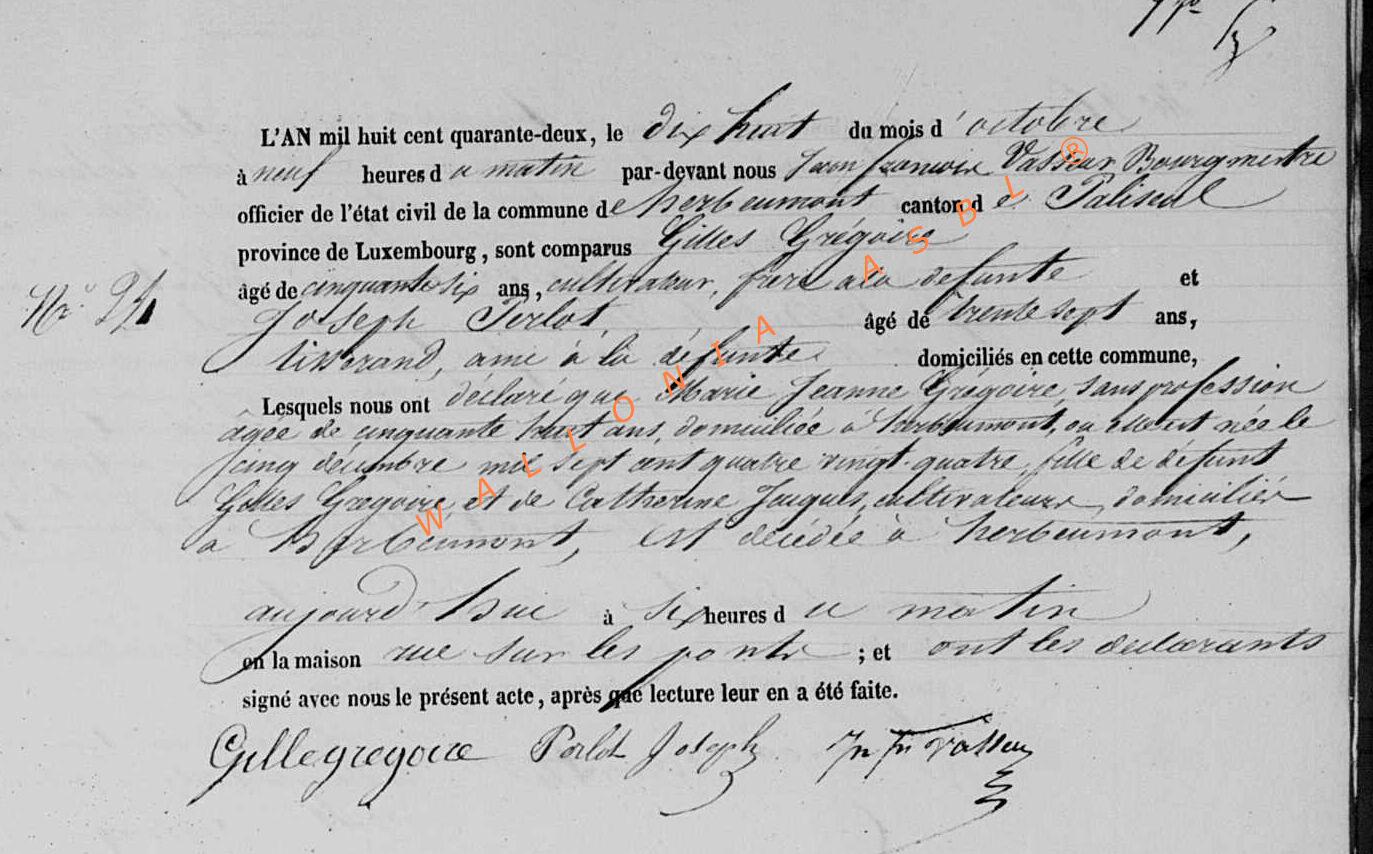 L'AN mil huit cent quarante-deux, le dix huit du mois d'octobre
à neuf heures du matin par-devant nous Jean françois Vasseur Bourgmestre
officier de l'état civil de la commune de herbeumont canton de Paliseul
province de Luxembourg, sont comparus Gilles Grégoire
âgé de cinquante six ans, cultivateur, frere a la defunte et
Nr. 24
Joseph Perlot âgé de trente sept ans,
tisserand, ami à la défunte domiciliés en cette commune,
Lesquels nous ont déclaré que Marie Jeanne Grégoire, sans profession
agée de cinquante huit ans, domiciliée à herbeumont, ou elle est née le
cinq décembre mil sept cent quatre vingt-quatre, fille de défunt
Gilles Gregoire, et de Catherine Jacques, cultivateurs, domiciliés
a herbeumont, est décédée à herbeumont,
aujourd'hui à six heures du matin
en la maison rue sur les ponts ; et ont les declarants
signé avec nous le présent acte, après que lecture leur en a été faite.
Gille gregoire Perlot Joseph Jn fn Vasseur
WALLONIA ASBL®